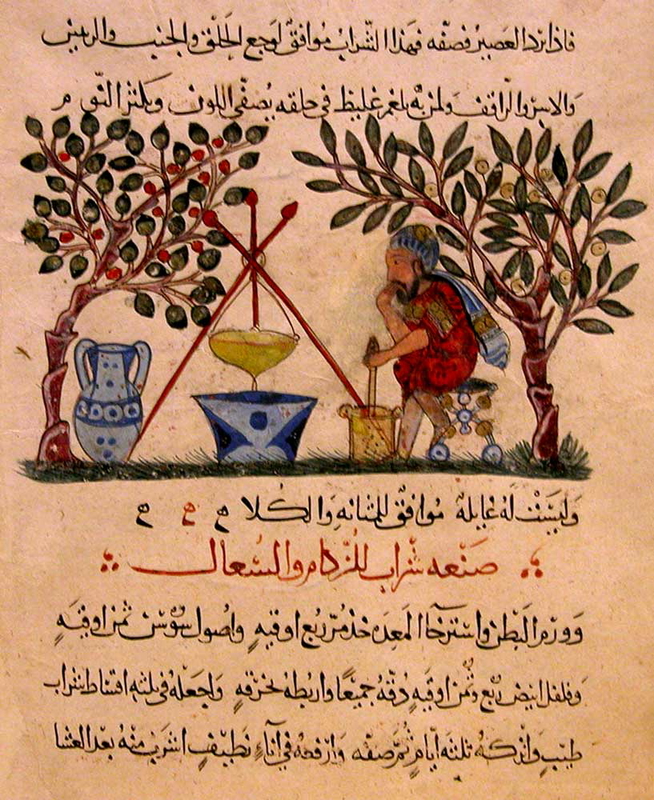 فاذا برد العصير فصفه فهذا الشراب موافق لوجع الحلق والجنب والرئتين
والابرد والراقف ولمن به بلغم غليظ في حلقه يصفي اللون ويكثر النوم م
وليست له غايلة موافق للمثانه والكلا
صنعه شراب للزكام والسعال
وورم البطن واسترخا المعده خذ مر ربع اوقيه واصول سوسن ثمن اوقيه
وفلفل ابيض ربع وثمن اوقيه دقه جميعا واربطه بخرقه واجعله في ثلثه اقساط شراب
طيب واتركه ثلثه ايام ثم صفه وارفعه في اناء نظيف اشرب منه بعد العشا